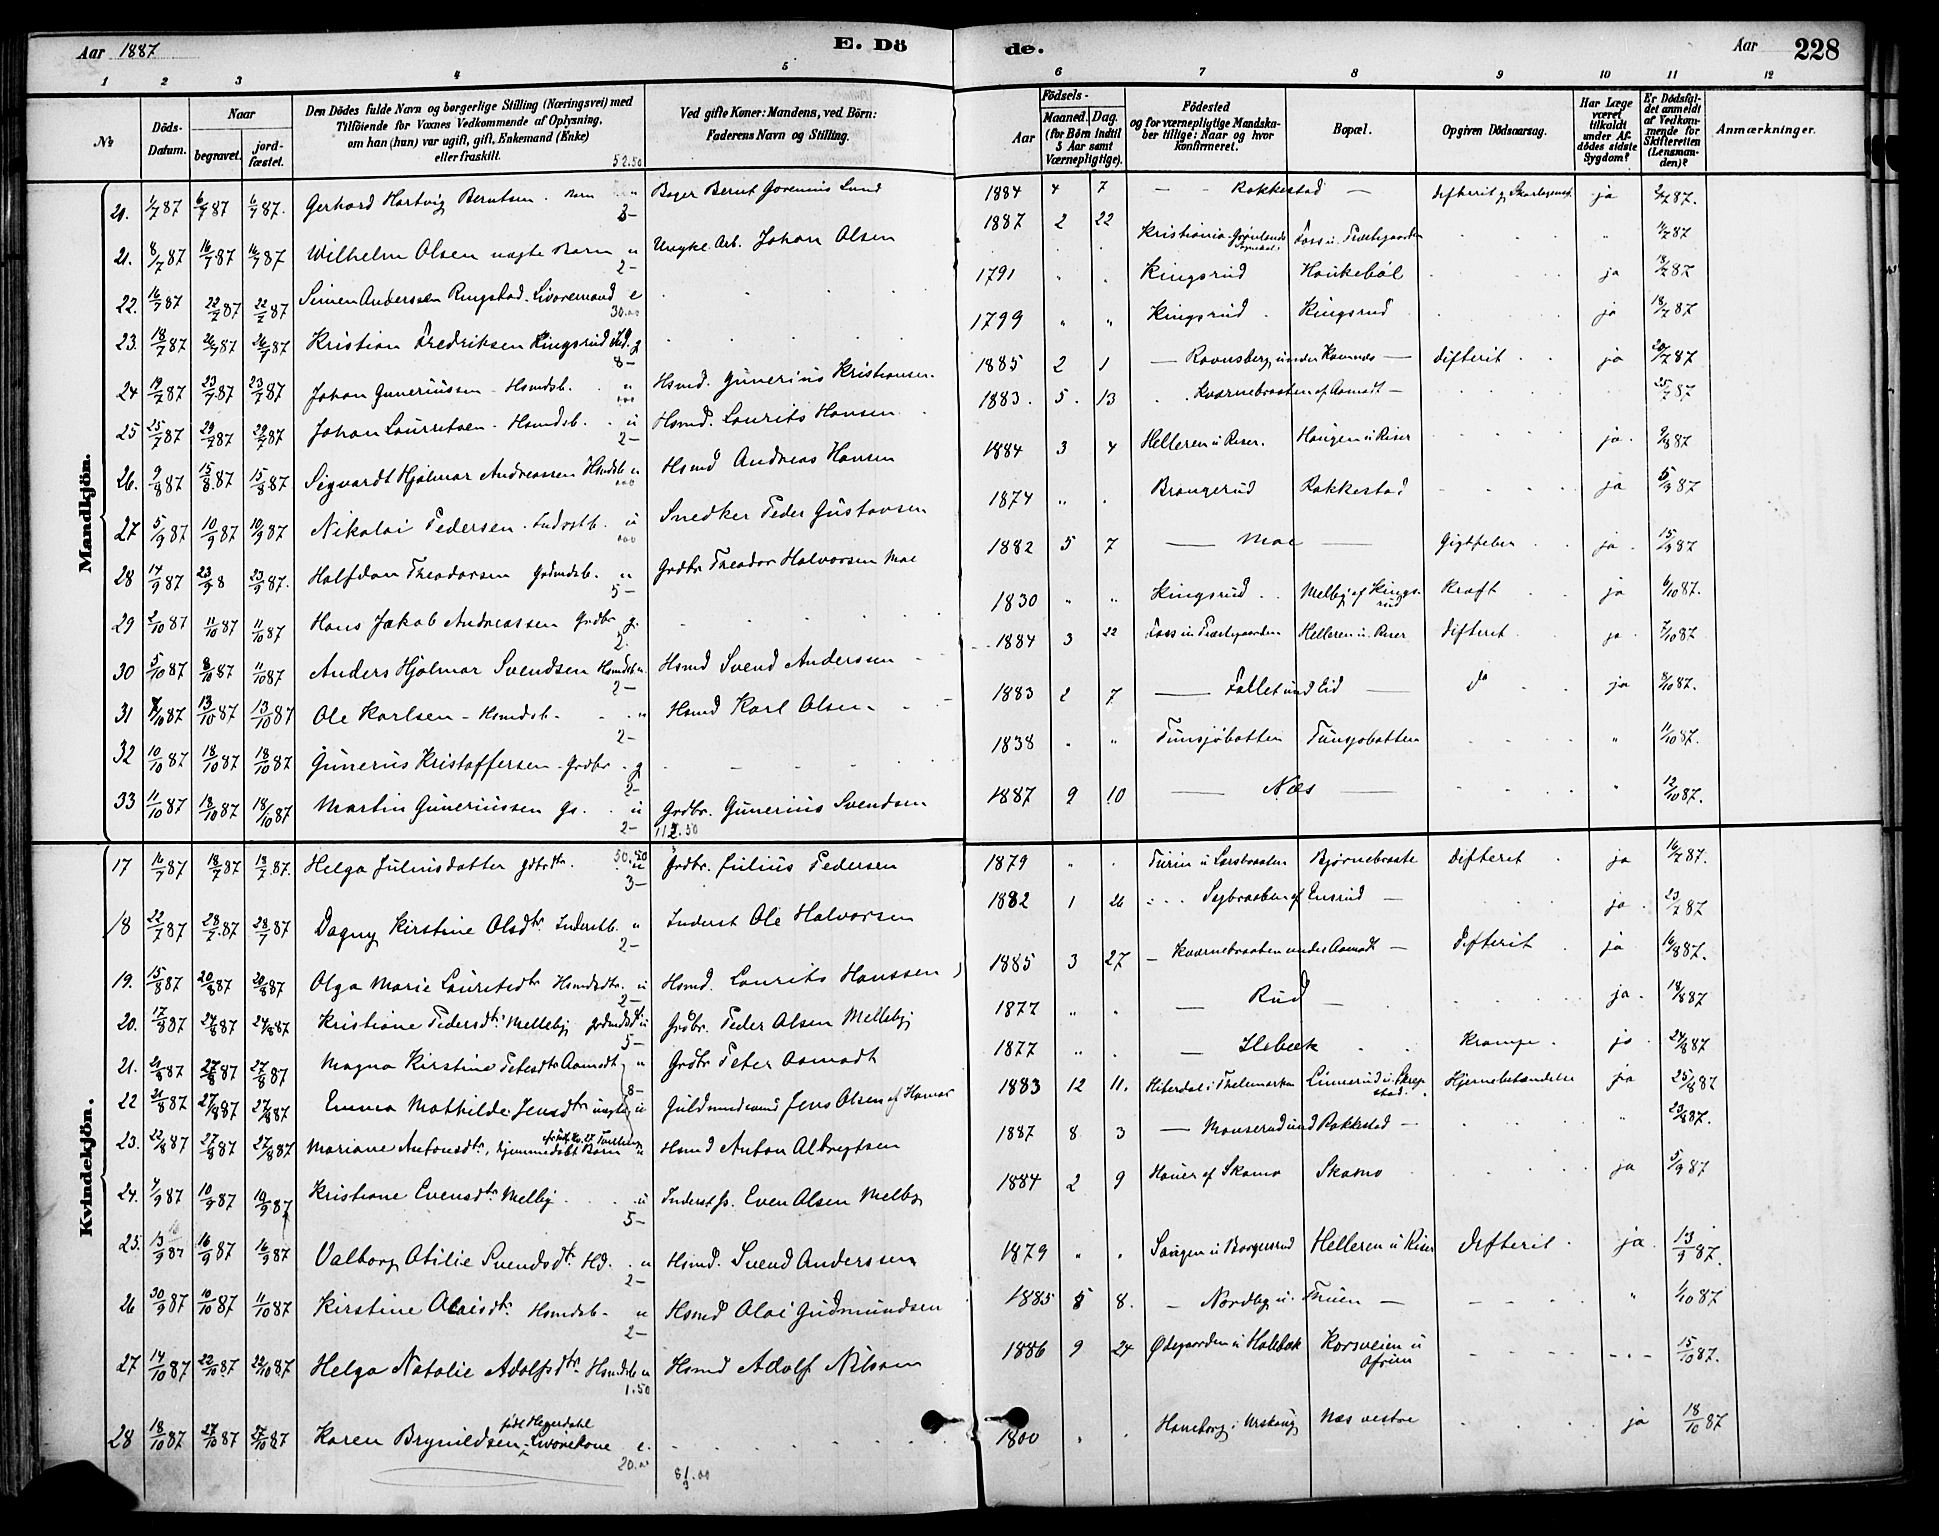 Aar 1887 E. Dö de. Aar 228
1 2 3 4 5 6 7 8 9 10 11 12
Nº
Döds-Datum.
Naar
begravet.
jord-fæstet.
Den Dödes fulde Navn og borgerlige Stilling (Næringsvei) med
Tilföiende for Voxnes Vedkommende af Oplysning,
om han (hun) var ugift, gift, Enkemand (Enke)
eller fraskilt. 52.50
Ved gifte Koner: Mandens, ved Börn:
Faderens Navn og Stilling.
Födsels-
Aar
Maaned. Dag.
(for Börn indtil
5 Aar samt
Værnepligtige).
Födested
og for værnepligtige Mandska-
ber tillige: Naar og hvor
konfirmeret.
Bopæl.
Opgiven Dödsaarsag.
Har Læge
været
tilkaldt
under Af-
dödes sidste
Sygdom?
Er Dödsfal-
det anmeldt
af Vedkom-
mende for
Skifteretten
(Lensman-
den)?
Anmærkninger.
Mandkjön.
1/7 87 6/7 87 6/7 87. Gerhard Hartvig Berntsen. Barn " Bager Bernt Lund 1884 4 7 — Rakkestad — Difterit og ja 2/7 87.
21. 8/7 87 16/7 87 16/7 87 Wilhelm Olsen uægte Barn u 2- Arb. Johan Olsen 1887 2 22 Kristiania Grønlands Foss u. Præstegaarden 11/7 87
22. 16/7 87 22/7 87 22/7 87 Simen Anderssen Ringstad. e 30.00 1791 Kingsrud Haukebøl ja 18/7 87
23. 18/7 87 26/7 87 26/7 87 Kristian Fredriksen Kingsrud g 8- 1799 " " Kingsrud Kingsrud ja 18/7 87
24 19/7 87 23/7 87 23/7 87 Johan Guneriussen Hsmdsb. " Hsmd. Gunerius Kristiansen 1885 2 1 — Ravnsberg under — Difterit ja 20/7 87
25 25/7 87 29/7 87 29/7 87 Johan Lauritsen - Hsmdsb. u 2- Hsmd. Laurits Hansen 1883. 5. 13 Kvernebraaten af Aamodt — 25/7 87
26. 9/8 87 15/8 87 15/8 87 Sigvardt Hjalmar Andreassen Hsmdsb u Hsmd Andreas Hansen 1884 3 4 Helleren u Riser. Haugen u Riser ja. 9/8 87
27 5/9 87 10/9 87 10/9 87 Nikolai Pedersen. u Snedker Peder Gustavsen 1874 " . Brangerud Rakkestad ja 5/9 87
28 17/9 87 23/9 8 23/9 87. Halfdan Theodorsen Grdmdsb. " 5- Grdbr Theodor Halvorsen Moe 1882 5 7 — Moe — Gigtfeber ja. 15/9 87
29 2/10 87 11/10 87 11/10 87 Hans Jakob Andreassen Grdbr g. 2. 1830 " " Kingsrud Melby af Kingsrud Kræft ja 6/10 87.
30 5/10 87 8/10 87 11/10 87 Anders Hjalmar Svendsen Hsmdsb u 2- Hsmd Svend Anderssen 1884 3 22 Foss u Præstegaarden Helleren u. Riser Difterit ja 7/10 87.
31 8/10 87 13/10 87 13/10 87 Ole Karlsen - Hsmdsb - " 2- Hsmd Karl Olsen 1883 2 7 — Fallet und Eid — Do ja 8/10 87.
32 10/10 87 18/10 87 18/10 87 Gunerus Kristoffersen Grdbr g 2- 1838 " " Tunsjøbotten Tunsjøbotten " 11/10 87.
33 11/10 87 18/10 87 18/10 87 Martin Guneriussen Gs. u 2- Grdbr. Gunerius Svendsen 1887 9 10 — Næs — " 12/10 87.
112.50
Kvindekjön.
50.50
17 16/7 87 18/7 87 18/7 87. Helga Juliusdatter u 3- Grdbr. Julius Pedersen 1879 " . u Larsbraaten Bjørnebraate Difterit ja 16/7 87.
18 22/7 87 28/7 87 28/7 87 Dagny Kirstine Olsdtr. Inderstb. " 2- Inderst Ole Halvorsen 1882 1 26 Sagbraaten af Ensrud — ja. 23/7 87
19. 15/8 87 20/8 87 20/8 87 Olga Marie Lauritsdtr Hsmdsdtr. u 2- Hsmd. Laurits Hanssen 1885 3 27 — Kvernebraaten under Aamodt — Difterit ja 16/8 87.
20. 17/8 87 24/8 87 24/8 87 Kristiane Pedersdtr Melleby u 5- Grdbr. Peder Olsen Melleby 1877 " . — Rud — ja. 18/8 87
21. 20/8 87 27/8 87 27/8 87 Magna Kirstine Petersdtr Aamodt u 8- Grdbr Peter Aamodt 1877 " . — Ilebæk Krampe ja 24/8 87
22 21/8 87 27/8 87 27/8 87 Emma Mathilde Jensdtr uægte u Guldsmedsvend Jens Olsen af Hamar 1883 12 11. Hiterdal i Thelemarken Linnerud u. Hjernebetændelse ja 25/8 87
23. 22/8 87 27/8 87 27/8 87 Mariane Antonsdtr, hjemmedøbt Barn u Hsmd Anton Albregtsen 1887 8 3 — und Rakkestad — " 23/8 87.
24. 4/9 87 10/9 87 10/9 87 Kristiane Evensdtr Melby u 5- Inderst fs. Even Olsen Melby 1884 2 9 af Skamo Skamo ja 5/9 87
25. 13/9 87 16/9 87 16/9 87 Valborg Otilie Svendsdtr Hd. u 2- Hsmd. Svend Anderssen 1879 " " Haugen u Borgersrud Helleren u Riser Difterit ja. 13/9 87.
26 30/9 87 10/10 87 11/10 87 Kirstine Olaisdtr Hsmdsb- u 2- Hsmd Olai Gudmundsen 1885 8 8. — Nordby u. — " 1/10 87
27 14/10 87 22/10 87 22/10 87. Helga Natalie Adolfsdtr Hsmdsb u 1.50 Hsmd Adolf Nilsson 1886 9 24 Ødegaarden u Korsveien u 15/10 87.
28 18/10 87 27/10 87 27/10 87 Karen Brynildsen født Hegerdahl e. 20.00 1800 " . Haneborg i Urskoug Næs vestre ja 18/10 87
81.00